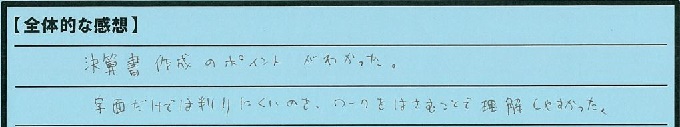 【全体的な感想】
決算書作成のポイントがわかった。
字面だけでは判りにくいので、ワークをはさむことで理解しやすかった。